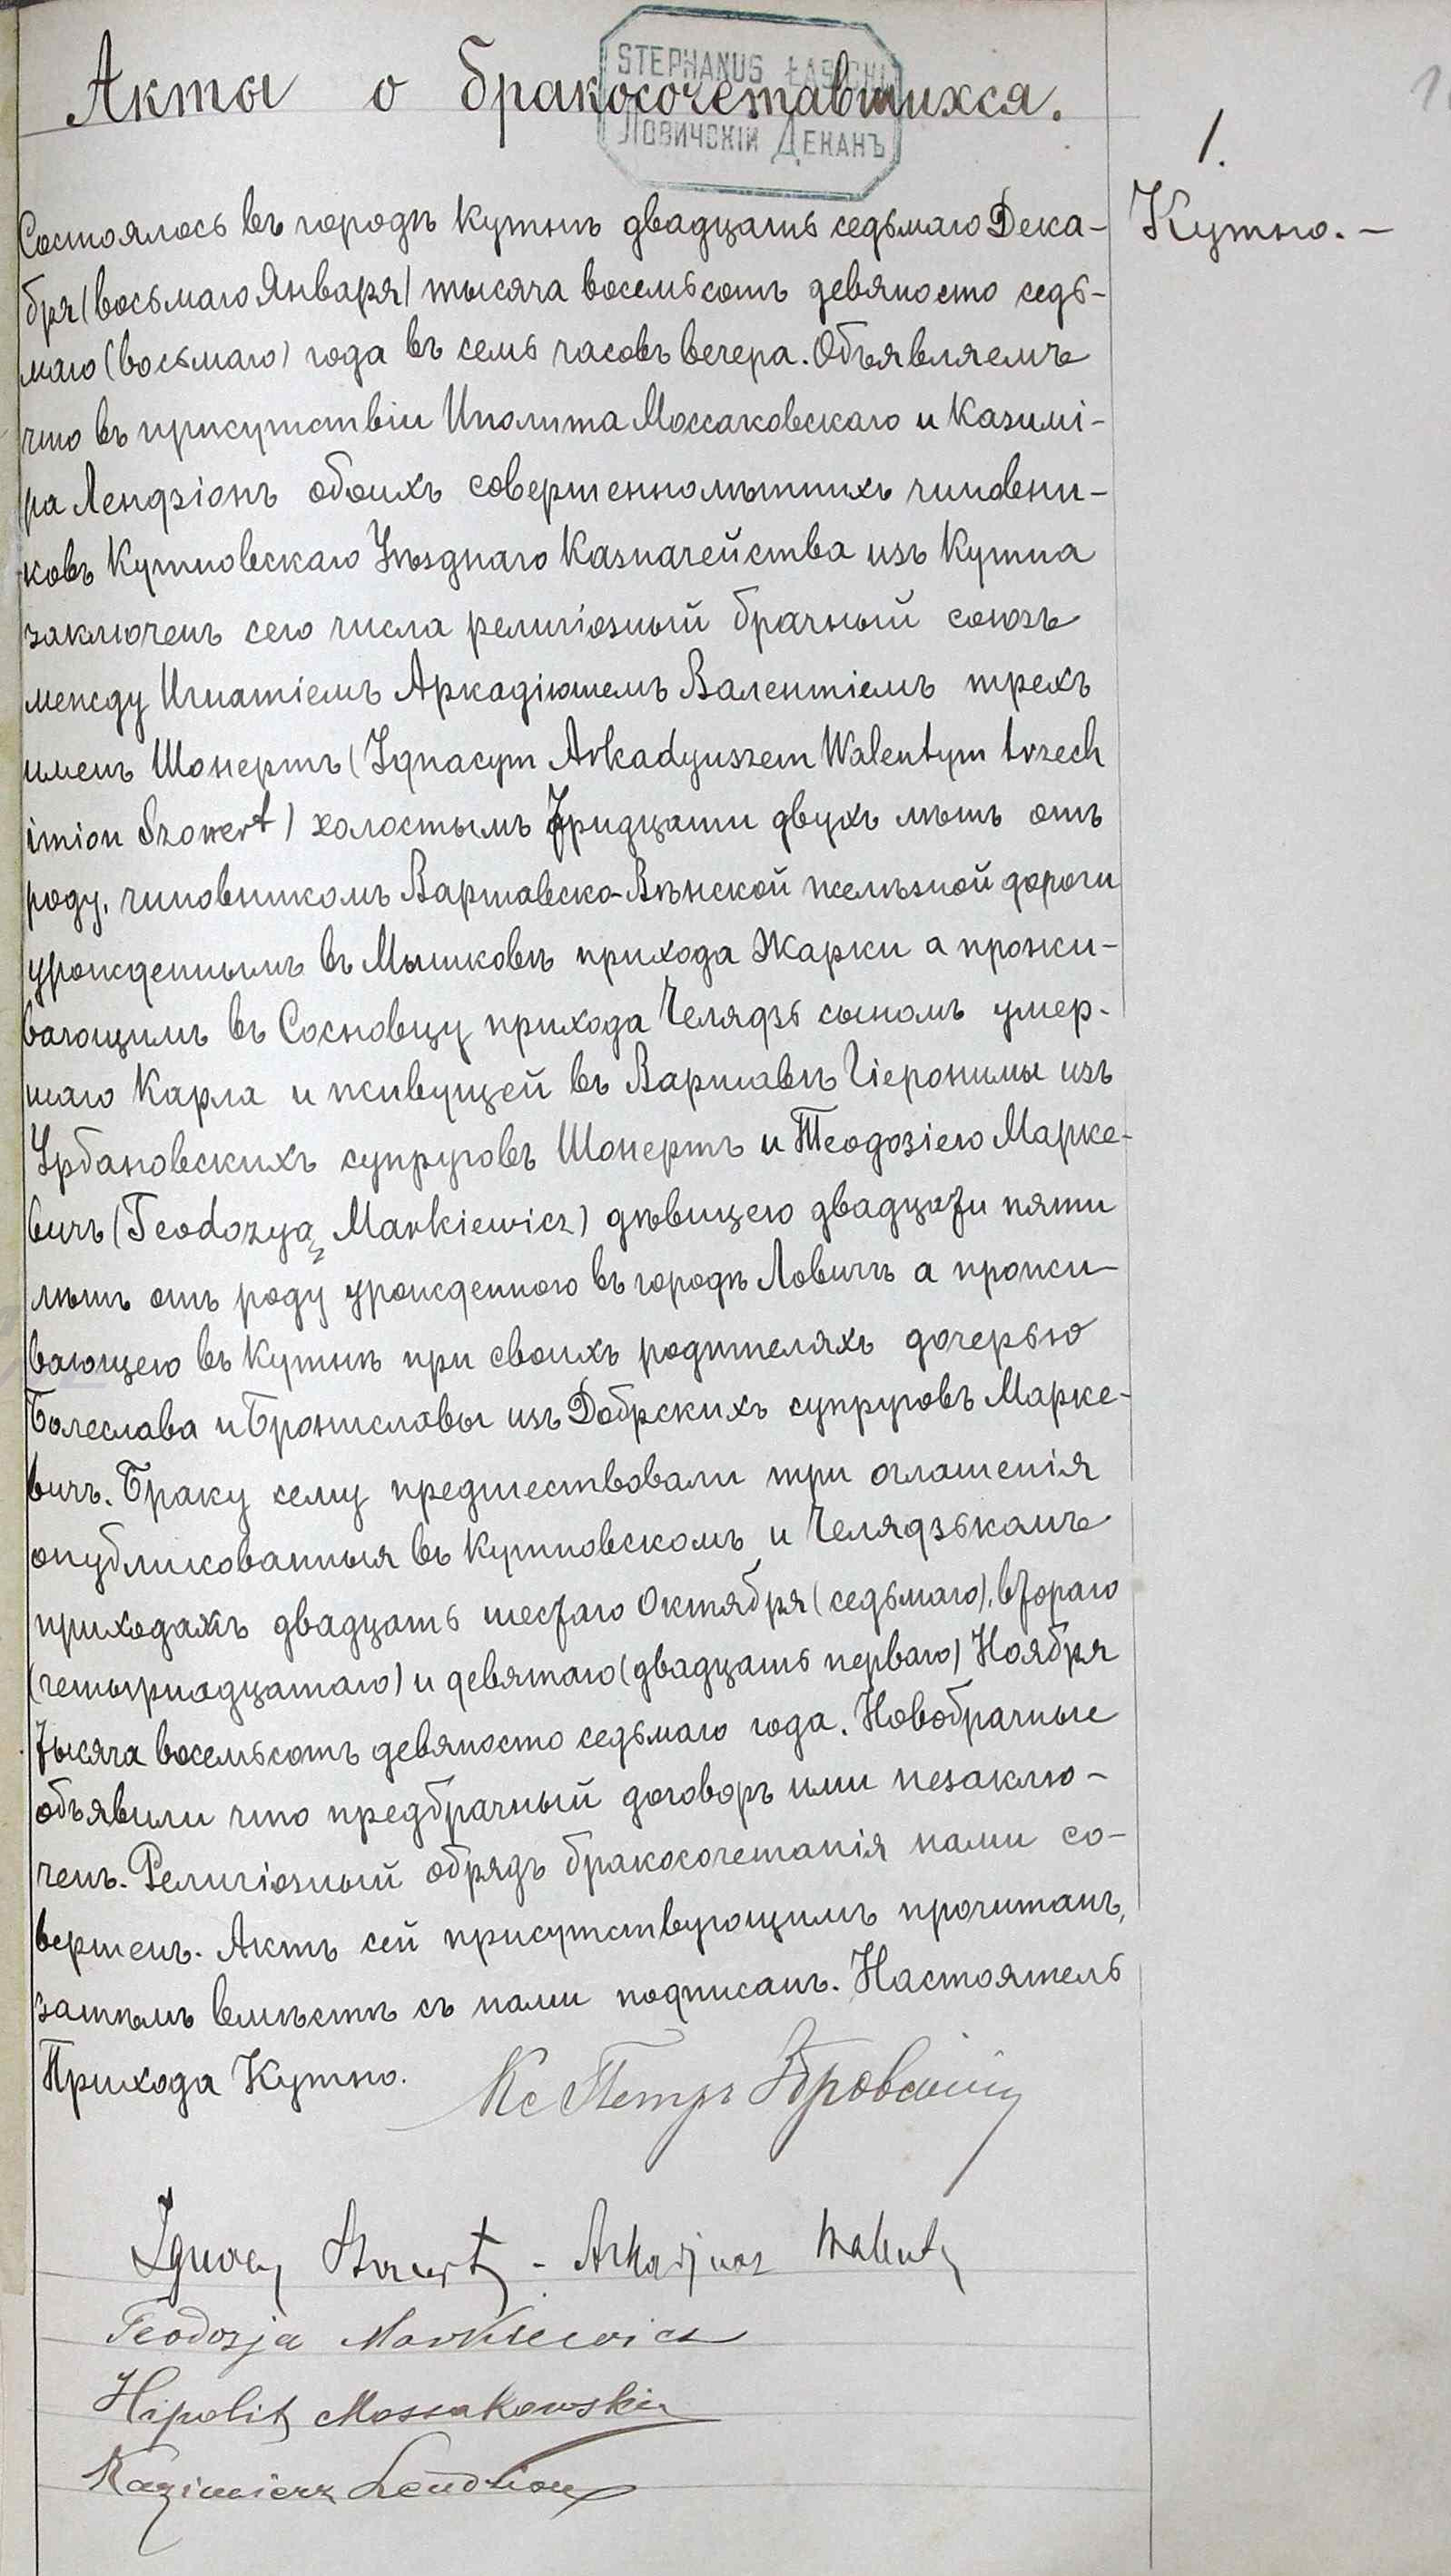 Акты о бракосочетавшихся.
STEPHANUS ŁASICKI
Ловичскій Деканъ
1.
Кутно. –
Состоялось въ городѣ Кутнѣ двадцать седьмаго Дека-
бря (восьмаго Января) тысяча восемьсотъ девяносто седь-
маго (восьмаго) года въ семь часовъ вечера. Объявляемъ
что въ присутствіи Иполита Моссаковскаго и Казимі-
ра Лендзіонъ обоихъ совершеннолѣтнихъ чиновни-
ковъ Кутновскаго Уѣзднаго Казначейства изъ Кутна
заключенъ сего числа религіозный брачный союзъ
между Игнатіемъ Аркадіюшемъ Валентіемъ трехъ
именъ Шонертъ (Ignacym Arkadyuszem Walentym trzech
imion Szonert) холостымъ тридцати двухъ лѣтъ отъ
роду, чиновникомъ Варшавско-Вѣнской желѣзной дороги
урожденнымъ въ Мышковѣ прихода Жарки а прожи-
вающимъ въ Сосновцу прихода Челядзь сыномъ умер-
шаго Карла и живущей въ Варшавѣ Гіеронимы изъ
Урбановскихъ супруговъ Шонертъ и Теодозіею Марке-
вичъ (Teodozyą Markiewicz) дѣвицею двадцати пяти
лѣтъ отъ роду урожденною въ городѣ Ловичъ а прожи-
вающею въ Кутнѣ при своихъ родителяхъ дочерью
Болеслава и Брониславы изъ Добрскихъ супруговъ Марке-
вичъ. Браку сему предшествовали три оглашенія
опубликованныя въ Кутновскомъ и Челядзькомъ
приходахъ двадцать шестаго Октября (седьмаго), втораго
(четырнадцатаго) и девятаго (двадцать перваго) Ноября
тысяча восемьсотъ девяносто седьмаго года. Новобрачные
объявили что предбрачный договоръ ими незаклю-
ченъ. Религіозный обрядъ бракосочетанія нами со-
вершенъ. Актъ сей присутствующимъ прочитанъ,
затѣмъ вмѣстѣ съ нами подписанъ. Настоятель
Прихода Кутно. Кс Петръ
Ignacy Szonert - Arkadjusz Walenty
Teodozja Markiewicz
Hipolit Mossakowski
Kazimierz Lendzion